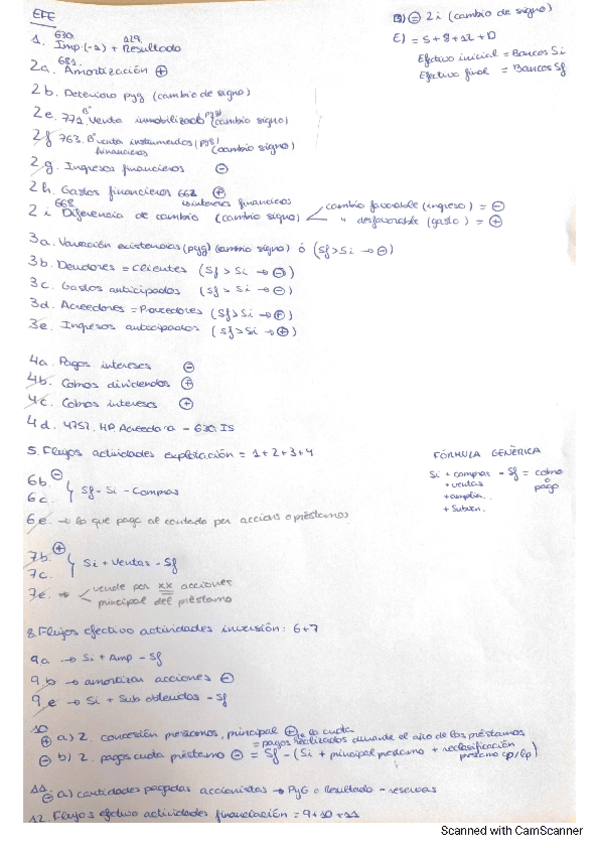 EFE
630 129
1. Imp (-1) + Resultado
681
2a. Amortización ⊕
2b. Deterioro pyg (cambio de signo)
2e. 771 Bº Venta inmobilizado pyg (cambio signo)
2f 763. Bº venta instrumentos (pyg) financieros (cambio signo)
2g. Ingresos financieros ⊖
2h. Gastos financieros 662 ⊕
668 intereses financieros
2i Diferencia de cambio (cambio signo) cambio favorable (ingreso) = ⊖
" desfavorable (gasto) = ⊕
3a. Variación existencias (pyg) (cambio signo) ó (Sf > Si → ⊖)
3b. Deudores = clientes (Sf > Si → ⊖)
3c. Gastos anticipados (Sf > Si → ⊖)
3d. Acreedores = Proveedores (Sf > Si → ⊕)
3e. Ingresos anticipados (Sf > Si → ⊕)
4a. Pagos intereses ⊖
4b. Cobros dividendos ⊕
4c. Cobros intereses ⊕
4d. 4752. HP Acreedora - 630. IS
5. Flujos actividades explotación = 1+2+3+4
6b ⊖
6c. Sf - Si - Compras
6e. → lo que paga al contado por accions o préstamos
7b. ⊕
7c. Si + Ventas - Sf
7e. → vende por xx acciones
principal del préstamo
8. Flujos efectivo actividades inversión: 6+7
9a → Si + Amp - Sf
9.b → amortizar acciones ⊖
9.e → Si + Sub obtenidas - Sf
10
⊕ a) 2. concesión préstamos, principal ⊕ la cuota
= pagos realizados durante el año de los préstamos
⊖ b) 2. pagos cuota préstamo ⊖ = Sf - (Si + principal préstamo + reclasificación préstamo cp/lp)
11.
⊖ a) cantidades pagadas accionistas → PyG o Resultado - reservas
12. Flujos efectivo actividades financiación = 9+10+11
D) ⊖ 2i (cambio de signo)
E) = 5 + 8 + 12 + D
Efectivo inicial = Bancos Si
Efectivo final = Bancos Sf
FÓRMULA GENÈRICA
Si + compras - Sf = cobro o pago
+ ventas
+ amplia.
+ Subven.
Scanned with CamScanner